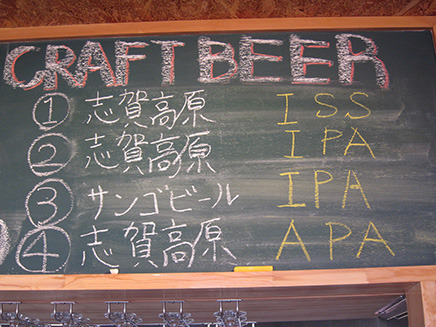 CRAFT BEER
① 志賀高原 ISS
② 志賀高原 IPA
③ サンゴビール IPA
④ 志賀高原 APA